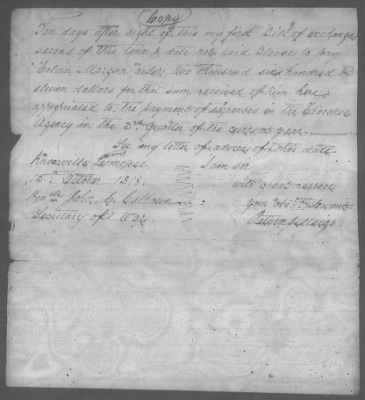 Copy
Ten days after sight of this my first Bill of exchange
second of this tenor & date not paid Please to pay
Calvin Morgan order two thousand six hundred &
dollars for that sum received of him here
appropriated to the payment of expenses in the Cherokee
Agency in the 3rd Quarter of the current year.
my letter of advice of this date
Knoxville Tennessee I am sir
15th October 181 with great
Honble John C Calhoun your obdt Servant
Secretary of War Return J Meigs